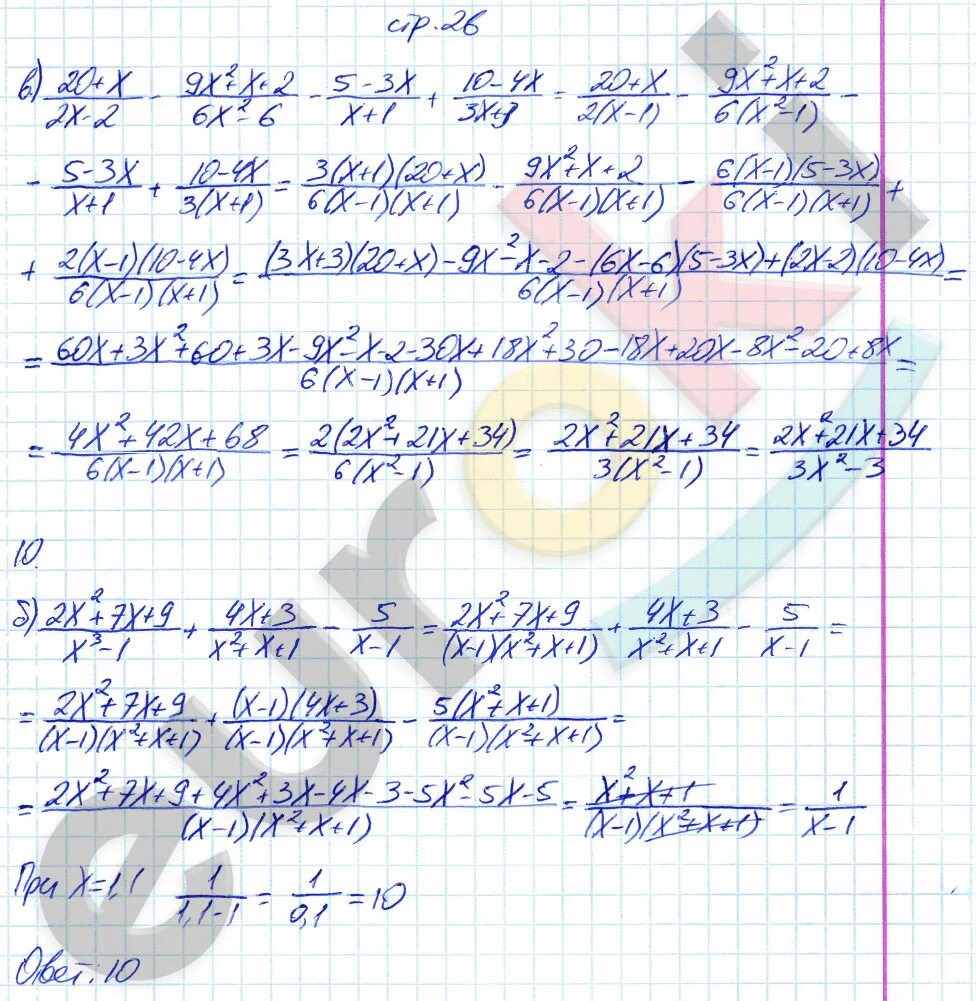 стр. 26
в) (20+x)/(2x-2) - (9x²+x+2)/(6x²-6) - (5-3x)/(x+1) + (10-4x)/(3x+3) = (20+x)/(2(x-1)) - (9x²+x+2)/(6(x²-1)) -
- (5-3x)/(x+1) + (10-4x)/(3(x+1)) = (3(x+1)(20+x))/(6(x-1)(x+1)) - (9x²+x+2)/(6(x-1)(x+1)) - (6(x-1)(5-3x))/(6(x-1)(x+1)) +
+ (2(x-1)(10-4x))/(6(x-1)(x+1)) = ((3x+3)(20+x)-9x²-x-2-(6x-6)(5-3x)+(2x-2)(10-4x))/(6(x-1)(x+1)) =
= (60x+3x²+60+3x-9x²-x-2-30x+18x²+30-18x+20x-8x²-20+8x)/(6(x-1)(x+1)) =
= (4x²+42x+68)/(6(x-1)(x+1)) = (2(2x²+21x+34))/(6(x²-1)) = (2x²+21x+34)/(3(x²-1)) = (2x²+21x+34)/(3x²-3)
10.
б) (2x²+7x+9)/(x³-1) + (4x+3)/(x²+x+1) - 5/(x-1) = (2x²+7x+9)/((x-1)(x²+x+1)) + (4x+3)/(x²+x+1) - 5/(x-1) =
= (2x²+7x+9)/((x-1)(x²+x+1)) + ((x-1)(4x+3))/((x-1)(x²+x+1)) - (5(x²+x+1))/((x-1)(x²+x+1)) =
= (2x²+7x+9+4x²+3x-4x-3-5x²-5x-5)/((x-1)(x²+x+1)) = (x²+x+1)/((x-1)(x²+x+1)) = 1/(x-1)
При x=1,1 1/(1,1-1) = 1/0,1 = 10
Ответ: 10
euroki